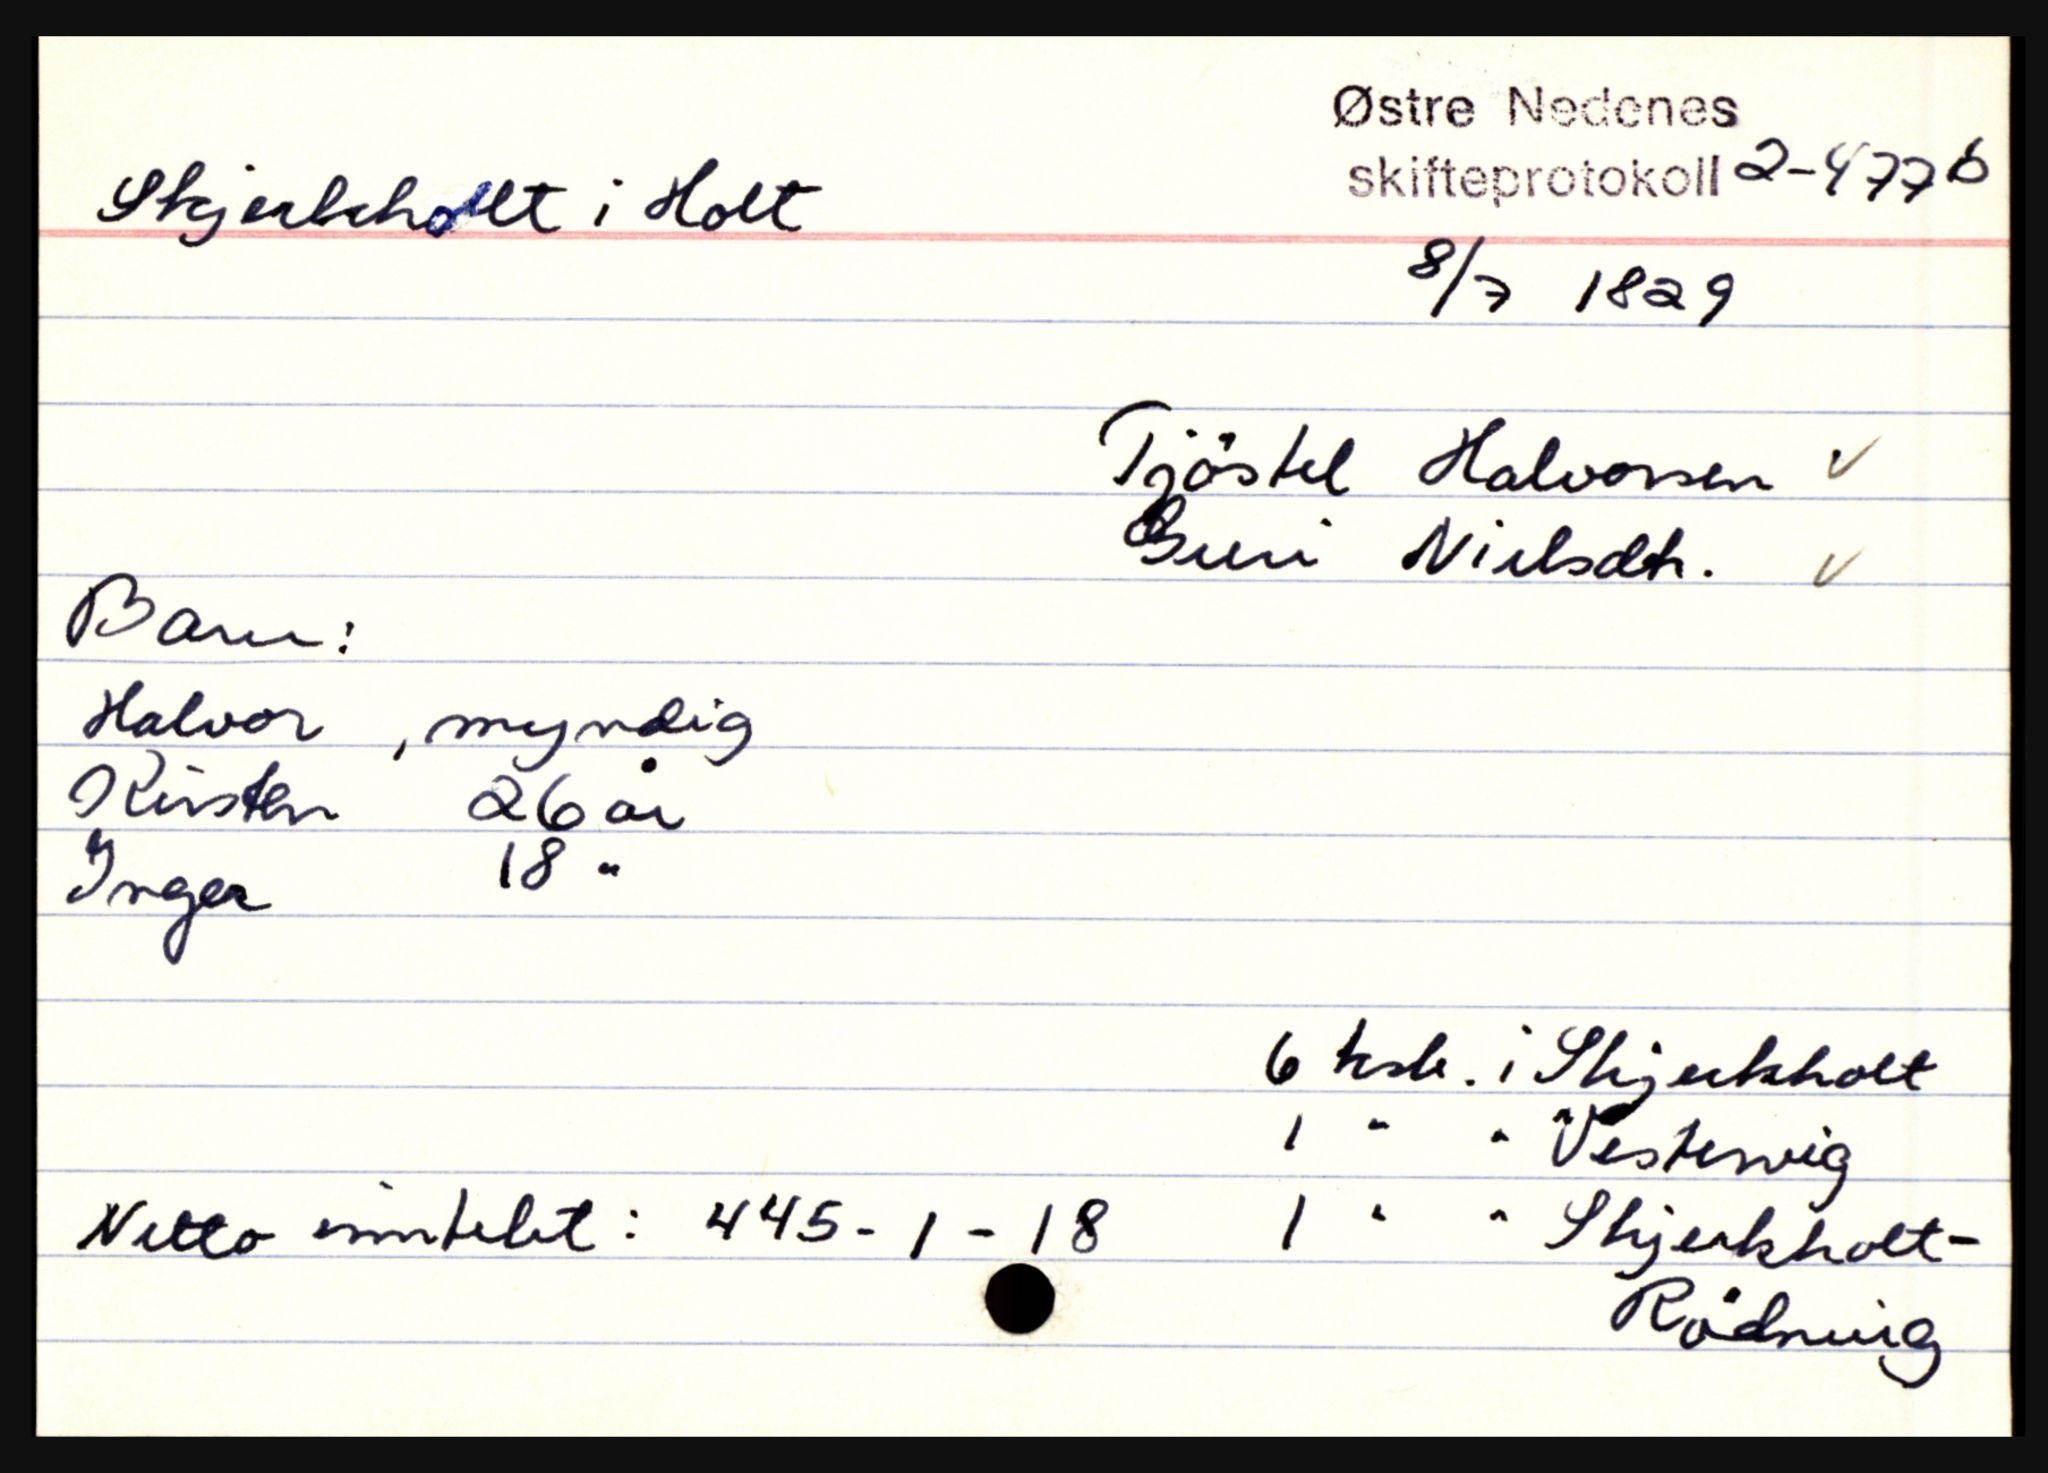 Østre Nedenes
skifteprotokoll 2-477b
Skjerkholt i Holt
8/7 1829
Tjöstel Halvorsen ✓
Guri Nielsdtr. ✓
Barn:
Halvor , myndig
Kirsten 26 år
Inger 18 "
6 ksk. i Skjerkholt
1 " " Vestervig
Netto inntekt: 445-1-18 1 " " Skjerkholt-
Rödning